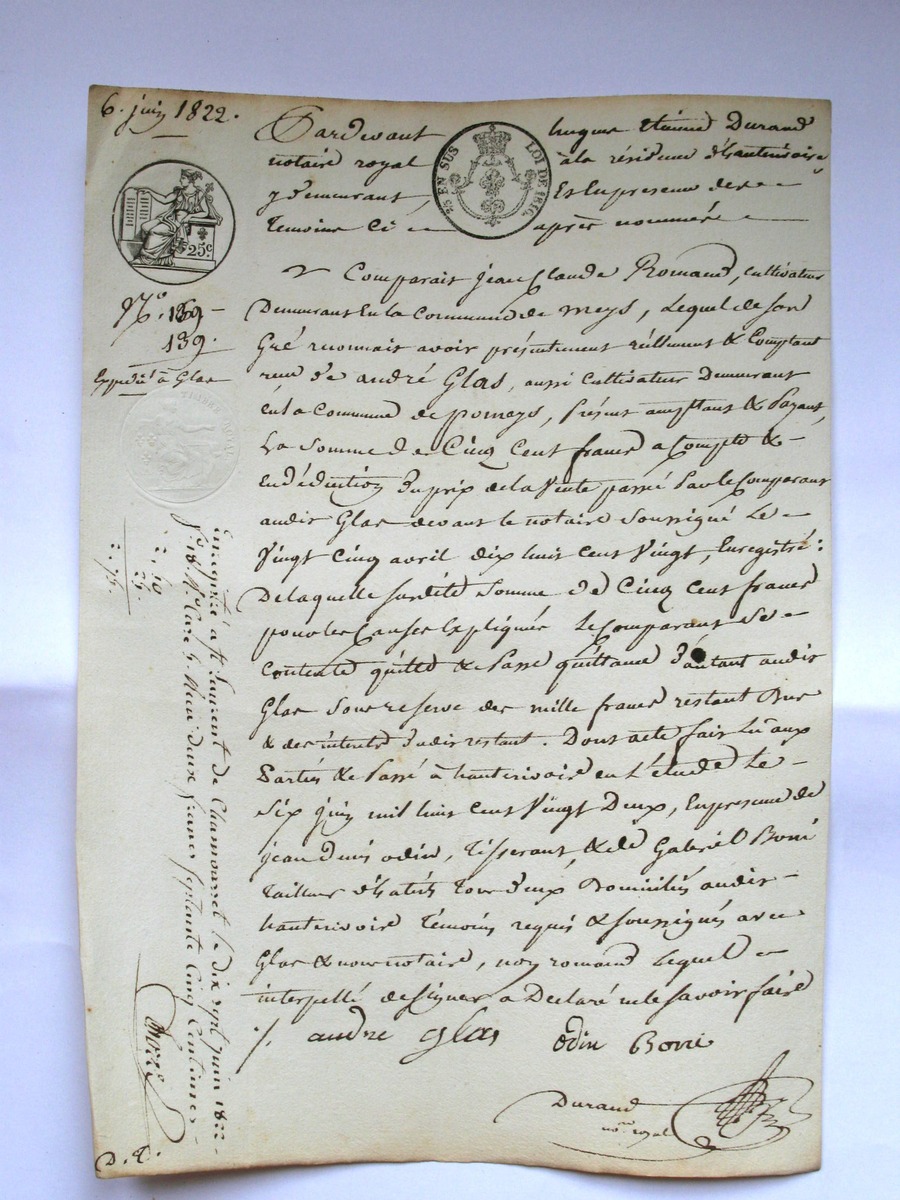 6. juin 1822.
Pardevant hugues étienne Durand
notaire royal à la résidence d'hauterivoire
y demeurant, Et en presence des
temoins ci après nommés
25 EN SUS
LOI DE 1816
25c.
Comparait jean Claude Romand, cultivateur
Demeurant En la Commune de meys, Lequel de Son
N.o 139
139.
Gré reconnait avoir présentement réellement & Comptant
reçu de andré Glas, aussi Cultivateur Demeurant
Expédié à Glas
en la Commune de pomeys, présent acceptant & Payant,
La Somme de Cinq Cent francs a Compte &
TIMBRE ROYAL
En déduction du prix de la Vente passé Par le Comparant
audit Glas devant le notaire Soussigné Le
Vingt Cinq avril dix huit cent Vingt, Enregistré:
De laquelle susdite Somme de Cinq Cent francs
pour les Causes Expliquées Le Comparant Se
Contente quitte & Passe quittance d'autant audit
Glas Sous reserve des mille francs restant Dus
& des interets dudit restant. Dont acte fait Lu aux
Parties & Passé à hauterivoire en L'étude Le
Six juin mil huit cent Vingt Deux, En presence de
jean Denis odin, Tisserant, & de Gabriel Borré
tailleur d'habits tous deux Domiciliés audit
hauterivoire témoins requis & soussignés avec
Glas & nous notaire, non romand Lequel
interpellé de signer a Declaré ne le Savoir faire
/. andre glas odin Borré
Durand
no.re royal
Enregistré a St Laurent de Chamousset le dix sept juin 1822
f.o 18 R.o Case 4 Reçu deux francs septante Cinq Centimes
2. 50
25.
2. 75.
D. E.